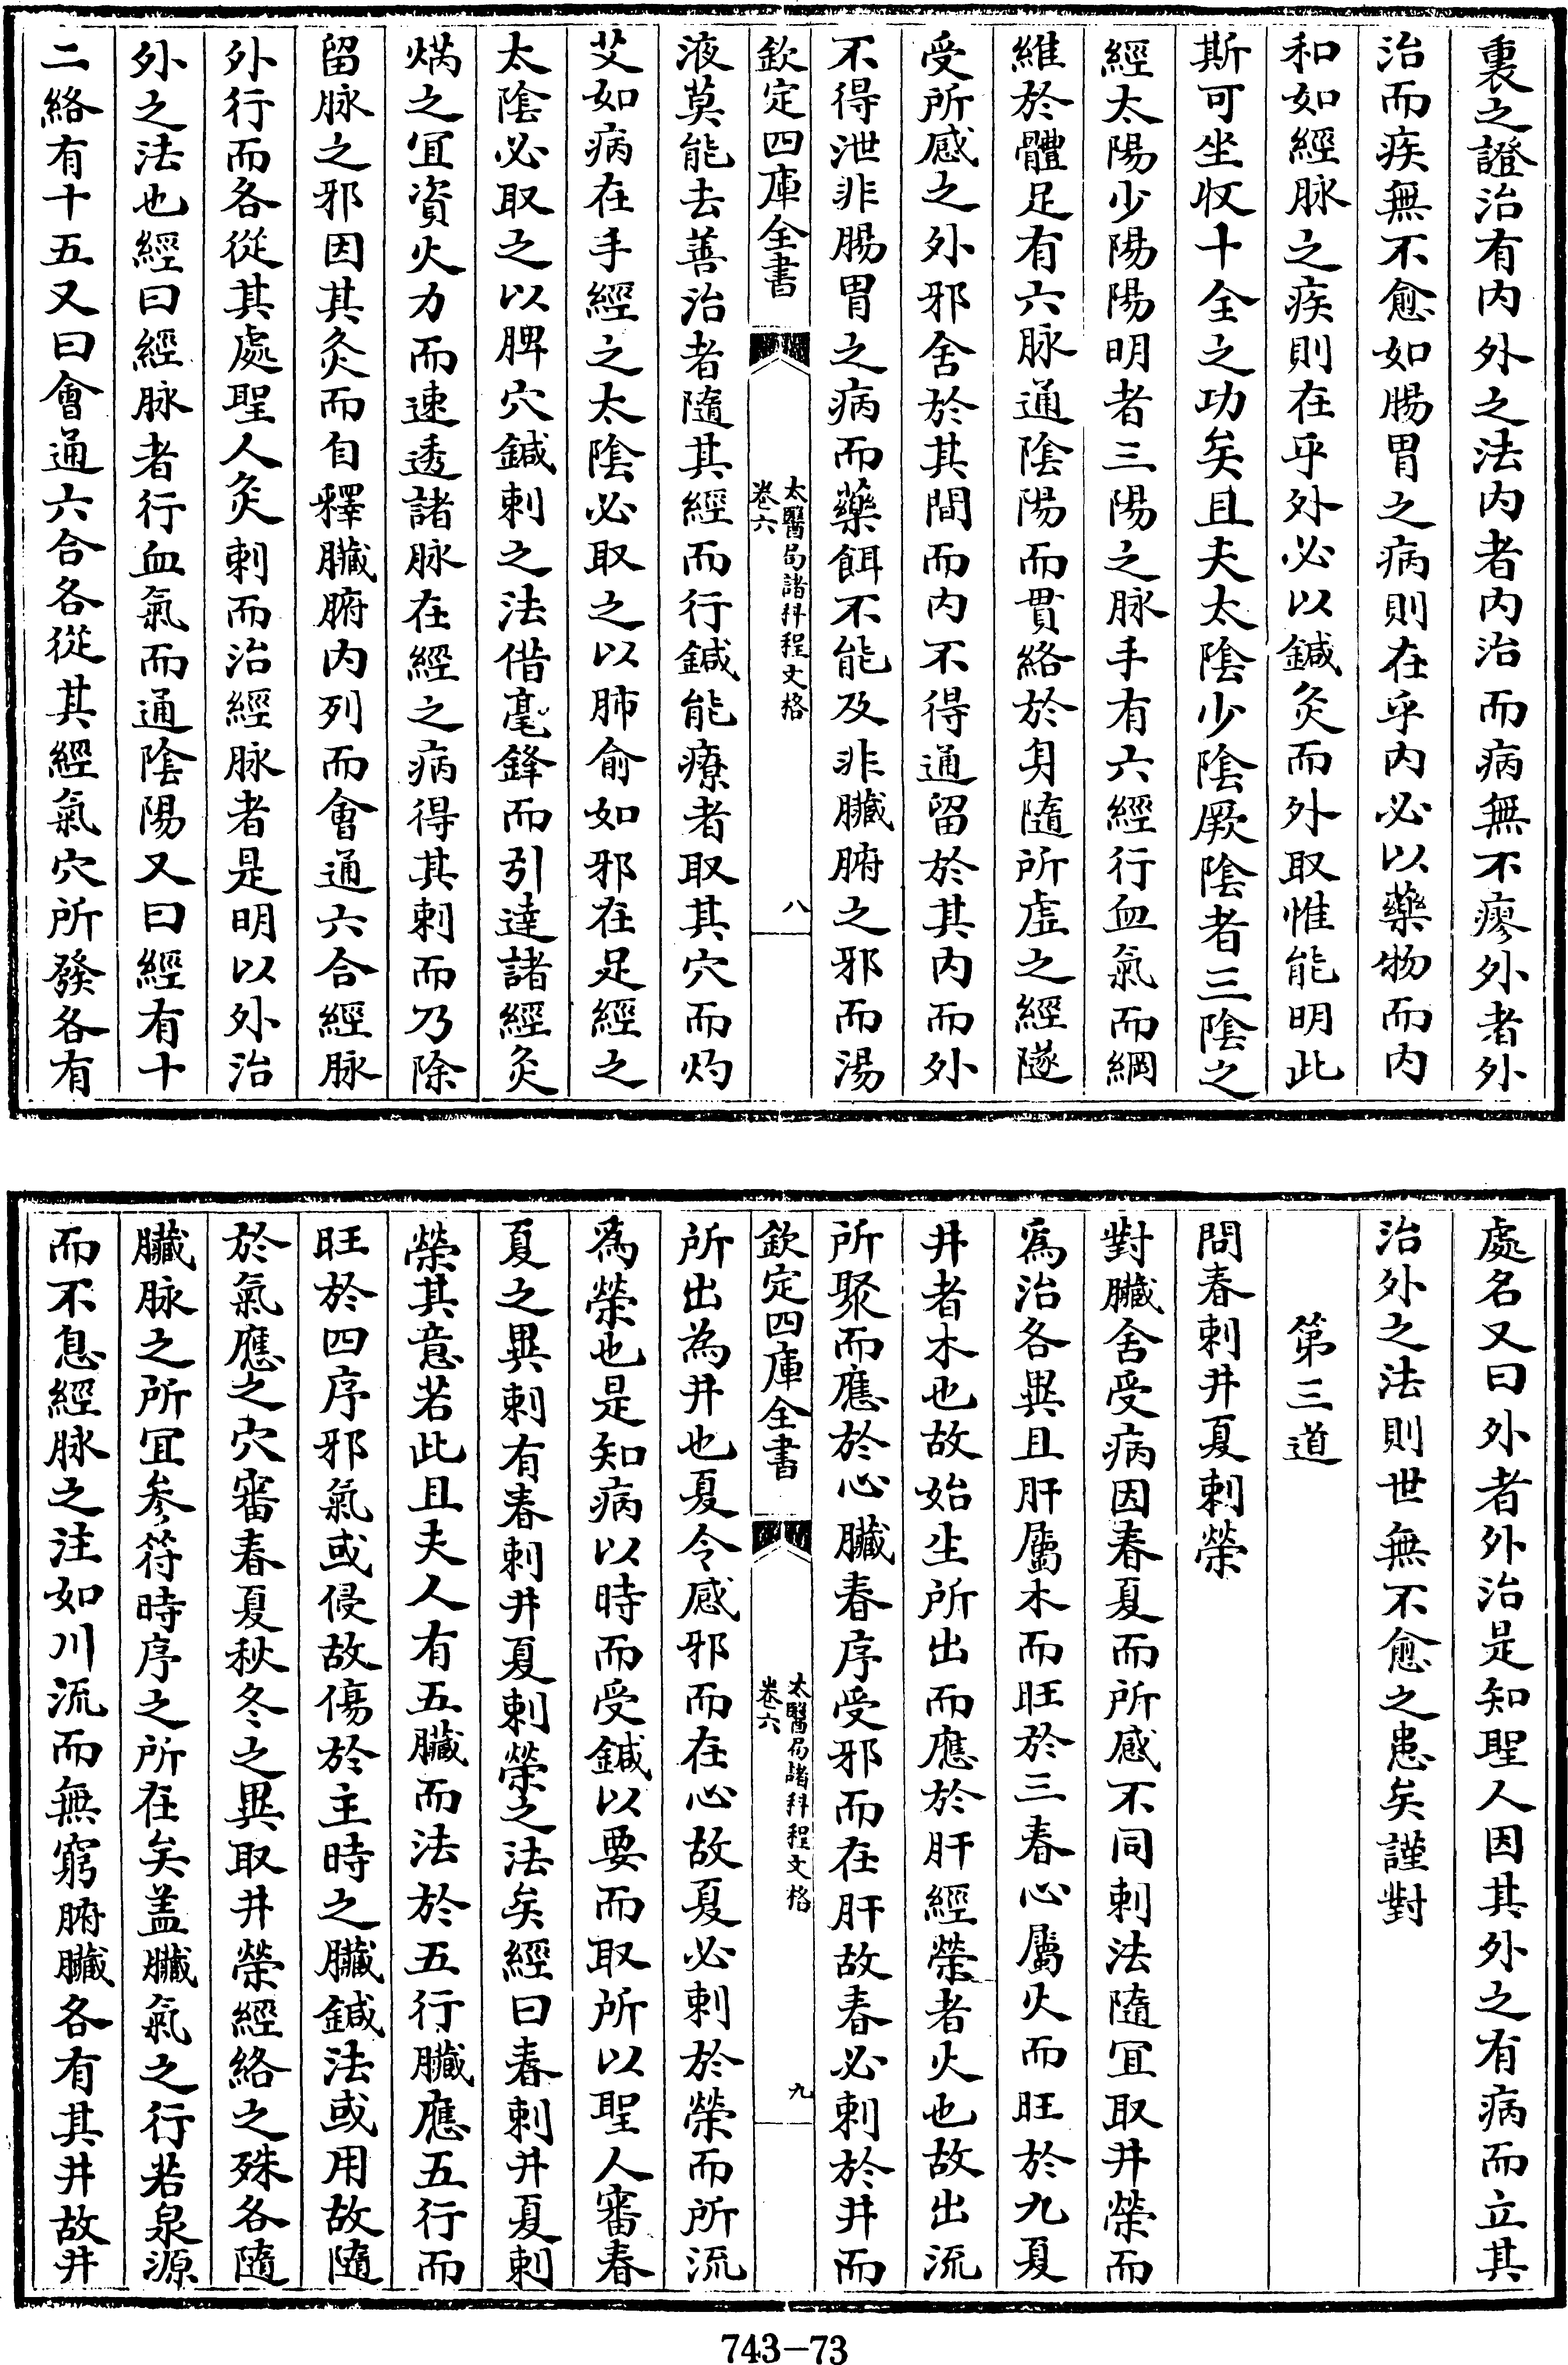 裏之證治有内外之法内者内治而病無不瘳外者外
治而疾無不愈如腸胃之病則在乎内必以藥物而内
和如經脉之疾則在乎外必以鍼灸而外取惟能明此
斯可坐收十全之功矣且夫太陰少陰厥陰者三陰之
經太陽少陽陽明者三陽之脉手有六經行血氣而綱
維於體足有六脉通陰陽而貫絡於身隨所虚之經隧
受所感之外邪舍於其間而内不得通留於其内而外
不得泄非腸胃之病而藥餌不能及非臟腑之邪而湯
欽定四庫全書
太醫局諸科程文格
卷六
八
液莫能去善治者隨其經而行鍼能療者取其穴而灼
艾如病在手經之太陰必取之以肺俞如邪在足經之
太陰必取之以脾穴鍼刺之法借毫鋒而引達諸經灸
焫之宜資火力而速透諸脉在經之病得其刺而乃除
留脉之邪因其灸而自釋臟腑内列而會通六合經脉
外行而各從其處聖人灸刺而治經脉者是明以外治
外之法也經曰經脉者行血氣而通陰陽又曰經有十
二絡有十五又曰會通六合各從其經氣穴所發各有
處名又曰外者外治是知聖人因其外之有病而立其
治外之法則世無不愈之患矣謹對
第三道
問春刺井夏刺滎
對臟舍受病因春夏而所感不同刺法隨宜取井滎而
為治各異且肝屬木而旺於三春心屬火而旺於九夏
井者木也故始生所出而應於肝經滎者火也故出流
所聚而應於心臟春序受邪而在肝故春必刺於井而
欽定四庫全書
太醫局諸科程文格
卷六
九
所出為井也夏令感邪而在心故夏必刺於滎而所流
為滎也是知病以時而受鍼以要而取所以聖人審春
夏之異刺有春刺井夏刺滎之法矣經曰春刺井夏刺
滎其意若此且夫人有五臟而法於五行臟應五行而
旺於四序邪氣或侵故傷於主時之臟鍼法或用故隨
於氣應之穴審春夏秋冬之異取井滎經絡之殊各隨
臟脉之所宜參符時序之所在矣盖臟氣之行若泉源
而不息經脉之注如川流而無窮腑臟各有其井故井
743-73